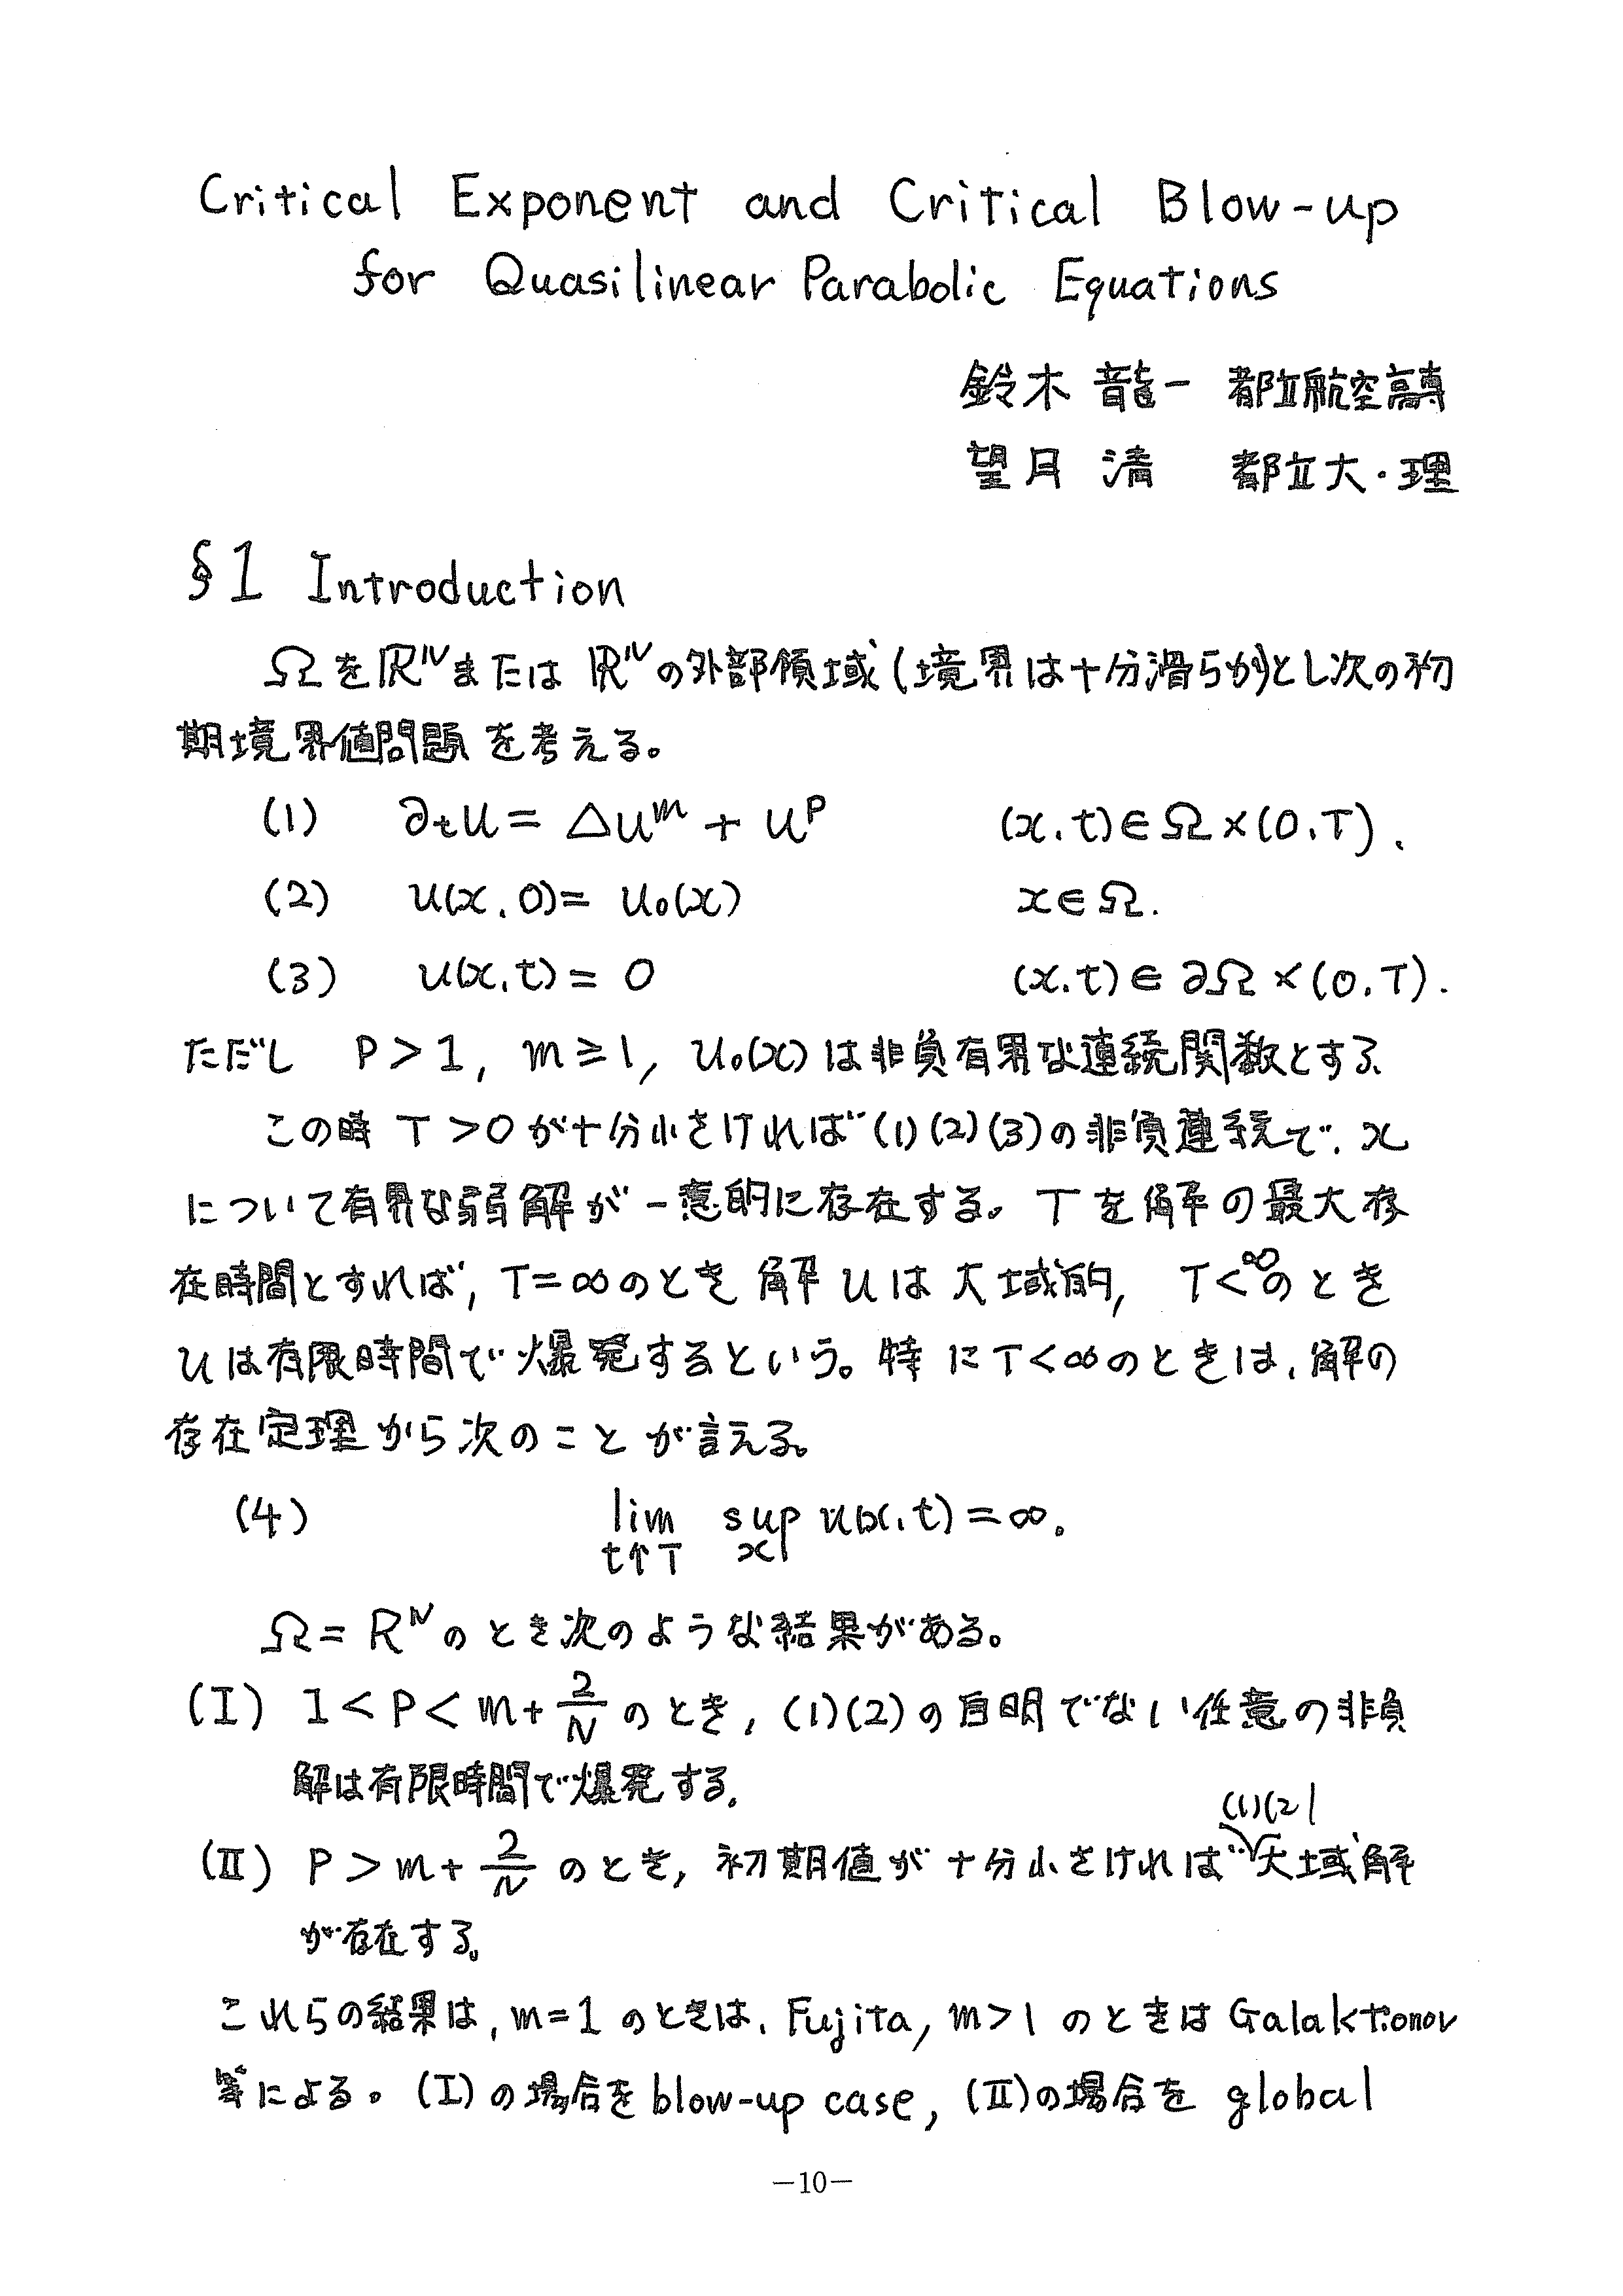 Critical Exponent and Critical Blow-up
for Quasilinear Parabolic Equations
鈴木 龍一 都立航空高専
望月 清 都立大・理
§1 Introduction
Ωを ℝᴺ または ℝᴺ の外部領域 (境界は十分滑らか)とし次の初
期境界値問題 を考える。
(1) ∂ₜu = Δuᵐ + uᵖ (x,t)∈Ω×(0,T),
(2) u(x,0)= u₀(x) x∈Ω.
(3) u(x,t)= 0 (x,t)∈∂Ω×(0,T).
ただし p>1, m≧1, u₀(x)は非負有界な連続関数とする
この時 T>0が十分小さければ(1)(2)(3)の非負連続で、x
について有界な弱解が一意的に存在する。Tを解の最大存
在時間とすれば, T=∞のとき 解 u は 大域的, T<∞のとき
u は有限時間で爆発するという。特にT<∞のときは、解の
存在定理から次のことが言える。
(4) lim sup u(x,t)=∞。
t↑T x
Ω= Rᴺ のとき次のような結果がある。
(I) 1<p<m+2/N のとき, (1)(2)の自明でない任意の非負
解は有限時間で爆発する.
(II) p>m+2/N のとき, 初期値が十分小さければ(1)(2)大域解
が存在する。
これらの結果は, m=1 のときは, Fujita, m>1 のときは Galaktionov
等による。(I)の場合を blow-up case, (II)の場合を global
—10—